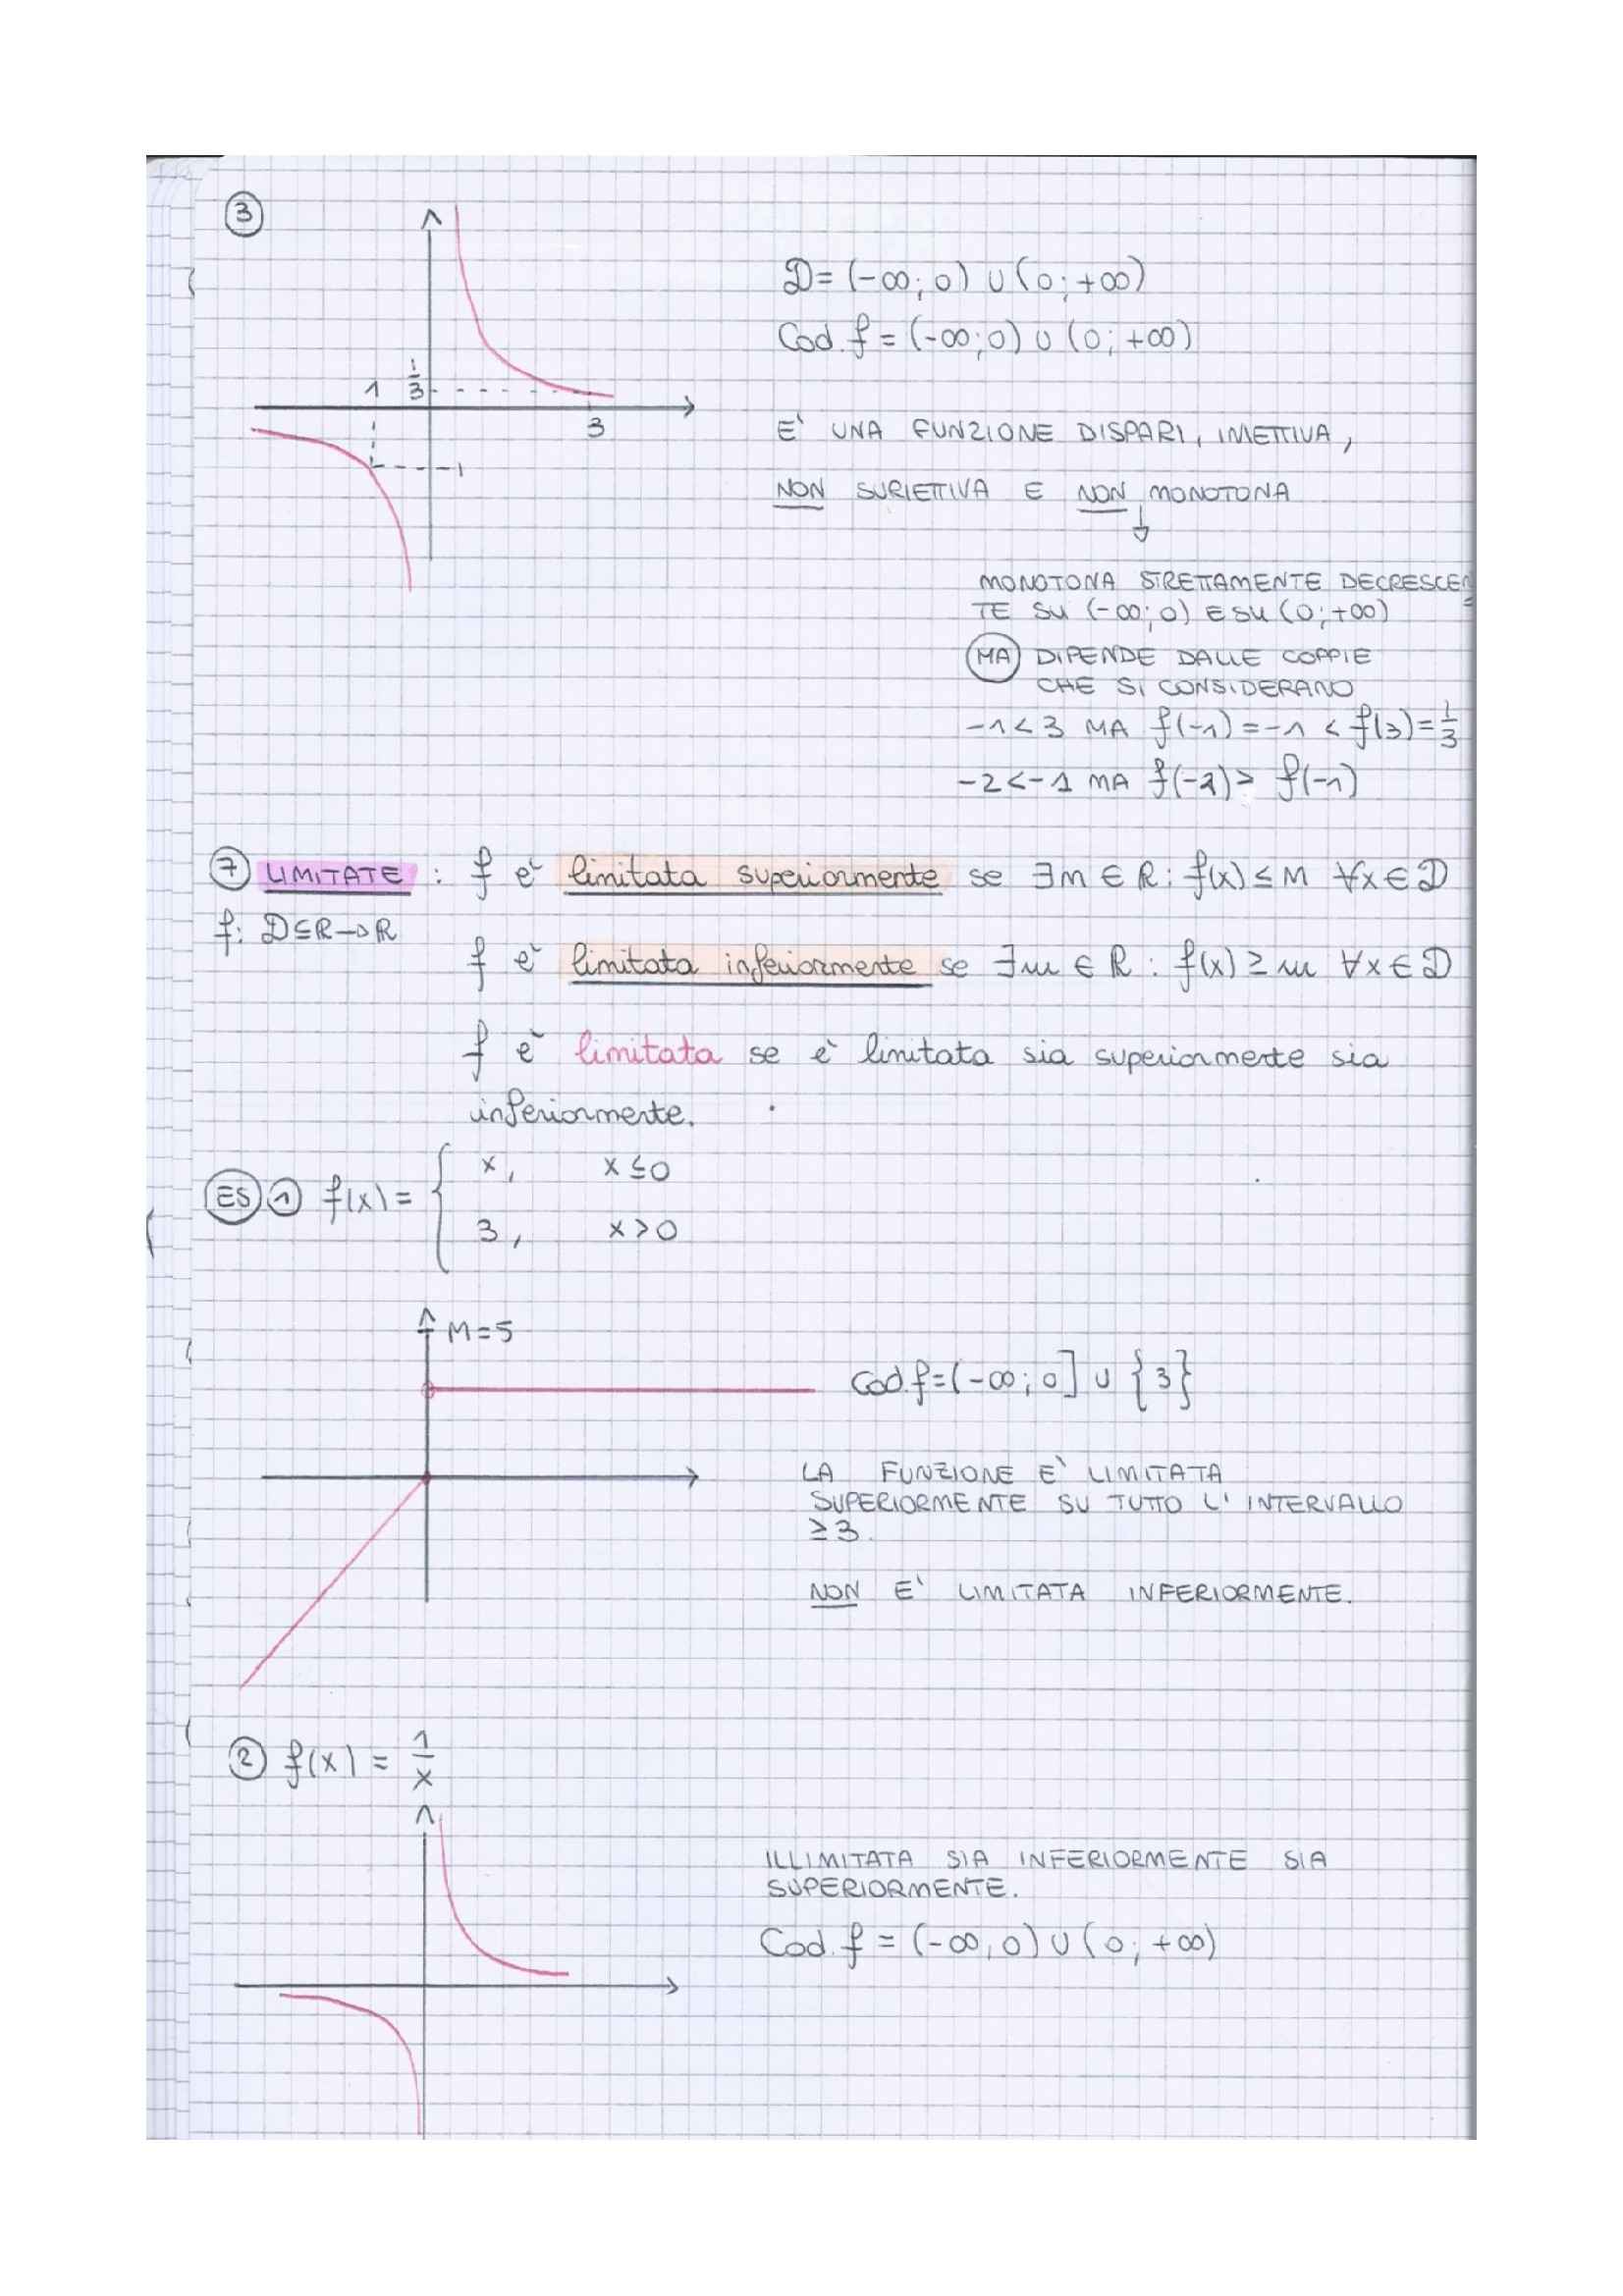 3
D = (-∞; 0) ∪ (0; +∞)
Cod. f = (-∞; 0) ∪ (0; +∞)
1 1/3
3
-1
E' UNA FUNZIONE DISPARI, INIETTIVA,
NON SURIETTIVA E NON MONOTONA
↓
MONOTONA STRETTAMENTE DECRESCEN
TE SU (-∞; 0) E SU (0; +∞)
MA DIPENDE DALLE COPPIE
CHE SI CONSIDERANO
-1 < 3 MA f(-1) = -1 < f(3) = 1/3
-2 < -1 MA f(-2) > f(-1)
7 LIMITATE : f è limitata superiormente se ∃M ∈ R : f(x) ≤ M ∀x ∈ D
f: D ⊆ R → R
f è limitata inferiormente se ∃m ∈ R : f(x) ≥ m ∀x ∈ D
f è limitata se è limitata sia superiormente sia
inferiormente.
ES 1 f(x) = { x, x ≤ 0
3, x > 0
M = 5
Cod. f = (-∞; 0] ∪ {3}
LA FUNZIONE E' LIMITATA
SUPERIORMENTE SU TUTTO L'INTERVALLO
≥ 3.
NON E' LIMITATA INFERIORMENTE.
2 f(x) = 1/x
ILLIMITATA SIA INFERIORMENTE SIA
SUPERIORMENTE.
Cod. f = (-∞, 0) ∪ (0; +∞)